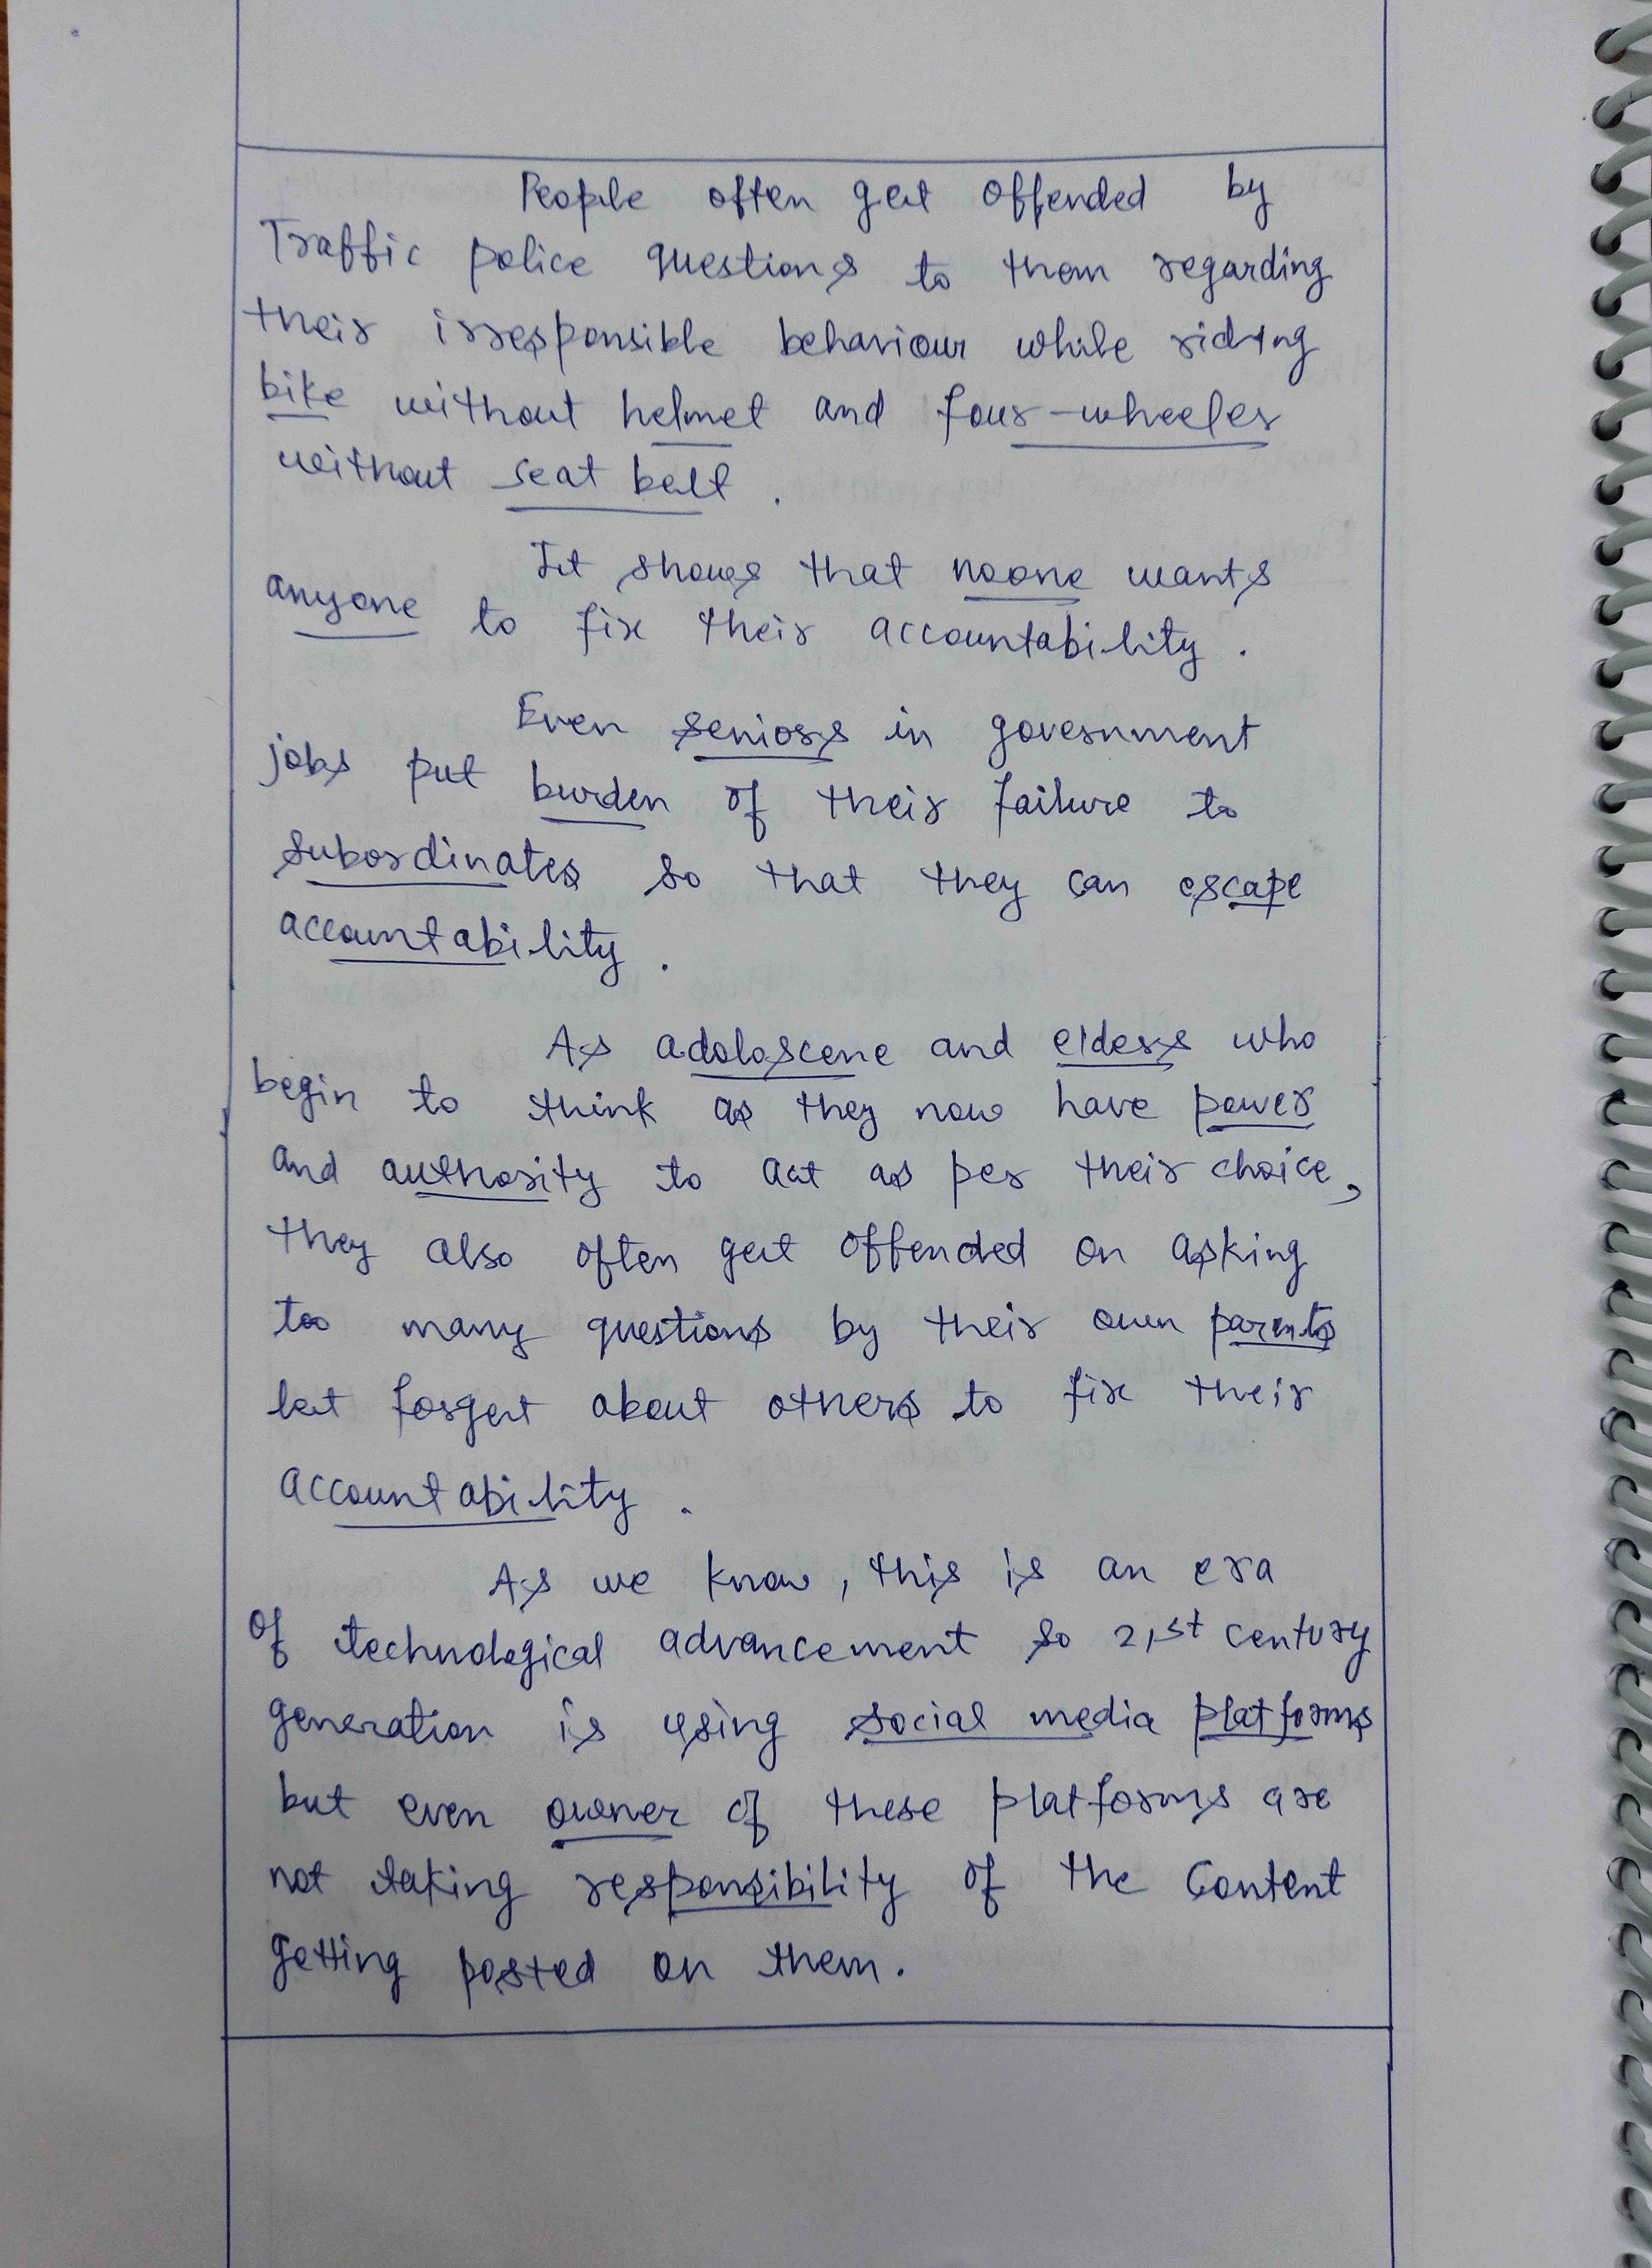 People often get offended by
Traffic police questions to them regarding
their irresponsible behaviour while riding
bike without helmet and four-wheeler
without seat belt.
It shows that noone wants
anyone to fix their accountability.
Even seniors in government
jobs put burden of their failure to
subordinates so that they can escape
accountability.
As adoloscene and elders who
begin to think as they now have power
and authority to act as per their choice,
they also often get offended on asking
too many questions by their own parents
let forget about others to fix their
accountability.
As we know, this is an era
of technological advancement so 21st century
generation is using social media platforms
but even owner of these platforms are
not taking responsibility of the content
getting posted on them.